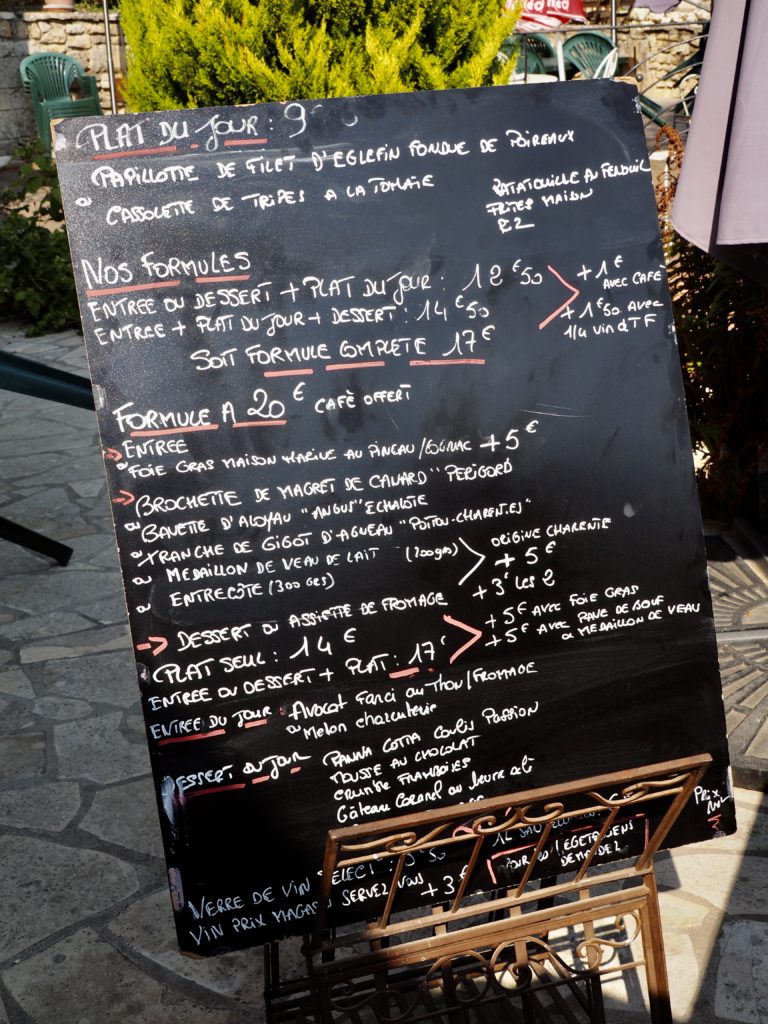 PLAT DU JOUR : 9€
PAPILLOTTE DE FILET D'EGLEFIN FONDUE DE POIREAUX
ou CASSOLETTE DE TRIPES A LA TOMATE
RATATOUILLE AU FENOUIL
FRITES MAISON
RIZ
NOS FORMULES
ENTREE OU DESSERT + PLAT DU JOUR : 12€50
ENTREE + PLAT DU JOUR + DESSERT : 14€50
+ 1€ AVEC CAFÉ
+ 1€50 AVEC
1/4 VIN de TF
SOIT FORMULE COMPLETE 17€
FORMULE A 20€ CAFÈ OFFERT
ENTREE
ou FOIE GRAS MAISON MARINE AU PINEAU/COGNAC +5€
BROCHETTE DE MAGRET DE CANARD "PERIGORD
ou BAVETTE D'ALOYAU "ANGUS" ECHALOTE
ou TRANCHE DE GIGOT D'AGNEAU "POITOU-CHARENTES"
ou MEDAILLON DE VEAU DE LAIT (200grs)
ou ENTRECÔTE (300 GRS)
ORIGINE CHARENTE
+ 5€
+ 3€ LES 2
DESSERT OU ASSIETTE DE FROMAGE
PLAT SEUL : 14€
ENTREE OU DESSERT + PLAT : 17€
+ 5€ AVEC FOIE GRAS
+ 5€ AVEC PAVE DE BOEUF
ou MEDAILLON DE VEAU
ENTREE DU JOUR : Avocat Farci au Thon/FROMAGE
ou Melon charcuterie
DESSERT DU JOUR
PANNA COTTA Coulis Passion
MOUSSE AU CHOCOLAT
CRUMBLE FRAMBOISES
Gâteau Coronel au beurre
VERRE DE VIN SELECT : 50
VIN PRIX MAGASIN SERVEZ VOUS +3€
VEGETARIENS
DEMANDEZ
Prix